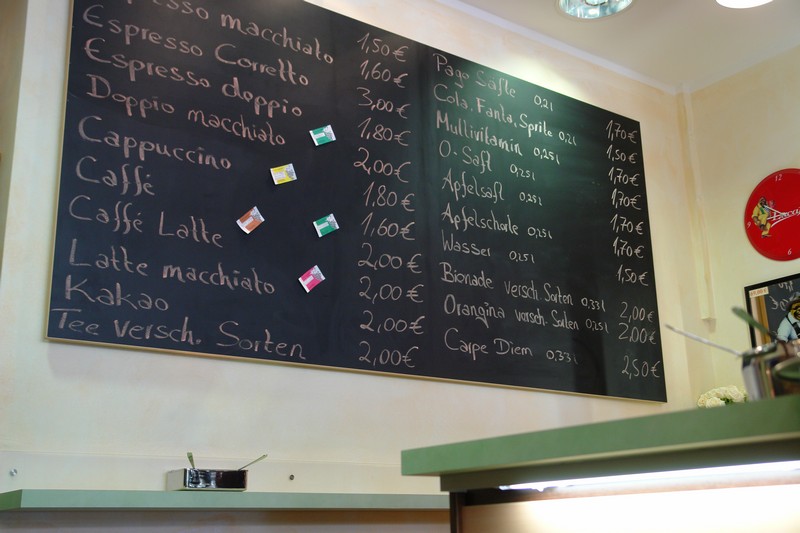 1,50€
presso macchiato 1,60€
Espresso Corretto 3,00€
Espresso doppio 1,80€
Doppio macchiato 2,00€
Cappuccino 1,80€
Caffé 1,60€
Caffé Latte 2,00€
Latte macchiato 2,00€
Kakao 2,00€
Tee versch. Sorten 2,00€
Pago Säfte 0,2l 1,70€
Cola, Fanta, Sprite 0,2l 1,50€
Multivitamin 0,25l 1,70€
O-Saft 0,25l 1,70€
Apfelsaft 0,25l 1,70€
Apfelschorle 0,25l 1,70€
Wasser 0,25l 1,50€
Bionade versch. Sorten 0,33l 2,00€
Orangina versch. Sorten 0,25l 2,00€
Carpe Diem 0,33l 2,50€
12